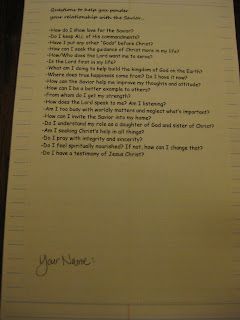 Questions to help you ponder
your relationship with the Savior...
-How do I show love for the Savior?
-Do I keep ALL of His commandments?
-Have I put any other "Gods" before Christ?
-How can I seek the guidance of Christ more in my life?
-How/Who does the Lord want me to serve?
-Is the Lord first in my life?
-What am I doing to help build the kingdom of God on the Earth?
-Where does true happiness come from? Do I have it now?
-How can the Savior help me improve my thoughts and attitude?
-How can I be a better example to others?
-From whom do I get my strength?
-How does the Lord speak to me? Am I listening?
-Am I too busy with worldly matters and neglect what's important?
-How can I invite the Savior into my home?
-Do I understand my role as a daughter of God and sister of Christ?
-Am I seeking Christ's help in all things?
-Do I pray with integrity and sincerity?
-Do I feel spiritually nourished? If not, how can I change that?
-Do I have a testimony of Jesus Christ?
Your Name: